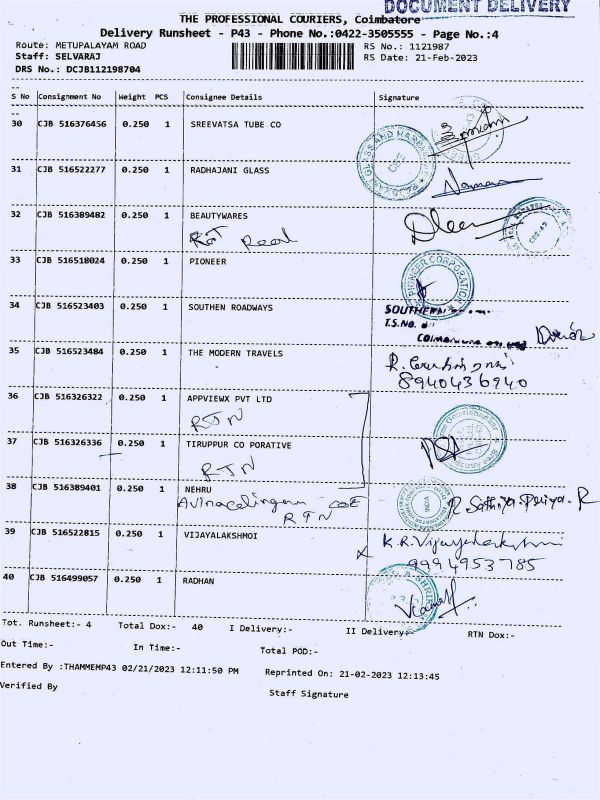 DOCUMENT DELIVERY
THE PROFESSIONAL COURIERS, Coimbatore
Delivery Runsheet - P43 - Phone No.:0422-3505555 - Page No.:4
Route: METUPALAYAM ROAD RS No.: 1121987
Staff: SELVARAJ RS Date: 21-Feb-2023
DRS No.: DCJB112198704
--
S No Consignment No Weight PCS Consignee Details Signature
--
30 CJB 516376456 0.250 1 SREEVATSA TUBE CO
31 CJB 516522277 0.250 1 RADHAJANI GLASS
32 CJB 516389482 0.250 1 BEAUTYWARES
33 CJB 516518024 0.250 1 PIONEER
PIONEER CORPORATION
34 CJB 516523403 0.250 1 SOUTHEN ROADWAYS
SOUTHERN
T.S.No.
35 CJB 516523484 0.250 1 THE MODERN TRAVELS
8940436940
36 CJB 516326322 0.250 1 APPVIEWX PVT LTD
RTN
37 CJB 516326336 0.250 1 TIRUPPUR CO PORATIVE
RTN
38 CJB 516389401 0.250 1 NEHRU
RTN
39 CJB 516522815 0.250 1 VIJAYALAKSHMOI
9994953785
40 CJB 516499057 0.250 1 RADHAN
Tot. Runsheet:- 4 Total Dox:- 40 I Delivery:- II Delivery:- RTN Dox:-
Out Time:- In Time:- Total POD:-
Entered By :THAMMEMP43 02/21/2023 12:11:50 PM Reprinted On: 21-02-2023 12:13:45
Verified By Staff Signature